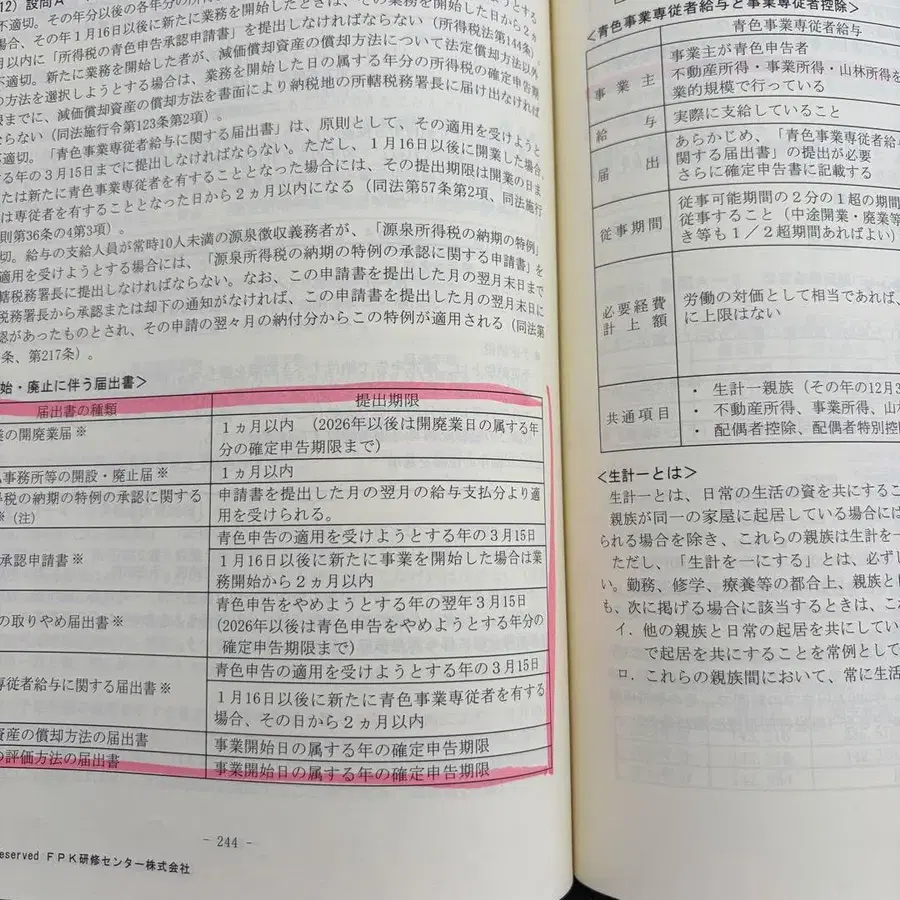 12）設問A
不適切。その年分以後の各年分の所得
場合、その年１月16日以後に新たに業務を開始したときは、その業務を開始した日から２カ
月以内に「所得税の青色申告承認申請書」を提出しなければならない（所得税法第144条）。
不適切。新たに業務を開始した者が、減価償却資産の償却方法について法定償却方法以外
の方法を選択しようとする場合は、業務を開始した日の属する年分の所得税の確定申告期
限までに、減価償却資産の償却方法を書面により納税地の所轄税務署長に届け出なければ
ならない（同法施行令第123条第2項）。
不適切。「青色事業専従者給与に関する届出書」は、原則として、その適用を受けようと
する年の３月15日までに提出しなければならない。ただし、１月16日以後に開業した場合、
または新たに青色事業専従者を有することとなった場合には、その提出期限は開業の日ま
たは専従者を有することとなった日から２ヵ月以内になる（同法第57条第2項、同法施行
規則第36条の4第3項）。
切。給与の支給人員が常時10人未満の源泉徴収義務者が、「源泉所得税の納期の特例」
適用を受けようとする場合には、「源泉所得税の納期の特例の承認に関する申請書」を
轄税務署長に提出しなければならない。なお、この申請書を提出した月の翌月末日まで
税務署長から承認または却下の通知がなければ、この申請書を提出した月の翌月末日に
認があったものとされ、その申請の翌々月の納付分からこの特例が適用される（同法第
条、第217条）。
始・廃止に伴う届出書＞
届出書の種類　提出期限
業の開廃業届※　１ヵ月以内　（2026年以後は開廃業日の属する年
分の確定申告期限まで）
事務所等の開設・廃止届※　１ヵ月以内
得税の納期の特例の承認に関する
※（注）　申請書を提出した月の翌月の給与支払分より適
用を受けられる。
承認申請書※　青色申告の適用を受けようとする年の３月15日
１月16日以後に新たに事業を開始した場合は業
務開始から２ヵ月以内
の取りやめ届出書※　青色申告をやめようとする年の翌年３月15日
（2026年以後は青色申告をやめようとする年分の
確定申告期限まで）
専従者給与に関する届出書※　青色申告の適用を受けようとする年の３月15日
１月16日以後に新たに青色事業専従者を有する
場合、その日から２ヵ月以内
資産の償却方法の届出書　事業開始日の属する年の確定申告期限
の評価方法の届出書　事業開始日の属する年の確定申告期限
- 244 -
eserved ＦＰＫ研修センター株式会社
＜青色事業専従者給与と事業専従者控除＞
青色事業専従者給与
事業主　事業主が青色申告者
不動産所得・事業所得・山林所得を
業的規模で行っている
給与　実際に支給していること
届出　あらかじめ、「青色事業専従者給与
関する届出書」の提出が必要
さらに確定申告書に記載する
従事期間　従事可能期間の２分の１超の期間
従事すること（中途開業・廃業等
き等も１／２超期間あればよい）
必要経費
計上額　労働の対価として相当であれば、
に上限はない
共通項目　・ 生計一親族（その年の12月3
・ 不動産所得、事業所得、山林
・ 配偶者控除、配偶者特別控除
＜生計一とは＞
生計一とは、日常の生活の資を共にするこ
親族が同一の家屋に起居している場合には
られる場合を除き、これらの親族は生計を一
ただし、「生計を一にする」とは、必ずし
い。勤務、修学、療養等の都合上、親族と
も、次に掲げる場合に該当するときは、こ
イ．他の親族と日常の起居を共にしてい
で起居を共にすることを常例として
ロ．これらの親族間において、常に生活